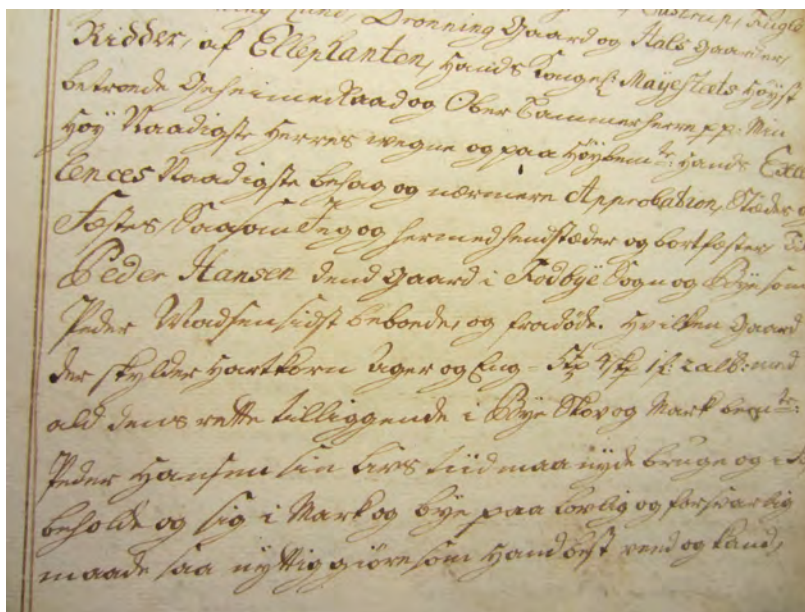 Lund, Dronning Gaard og Hals Gaarder,
Ridder, af Elephanten, Hands Kongel: Mayestets Høyst
betroede Geheimeraad og Ober Cammerherre pp: Min
Høy Naadigste Herres wegne og paa Høybem:te Hands Excel
lences Naadigste behag og nærmere Approbation, Stæder
Fæstes, Saasom Jeg og hermed hendstæder og bortfæster,
Peder Hansen dend Gaard i Fodbye Sogn og Bye som
Peder Madsen sidst beboede, og fradøde. Hvilken Gaard
der skylder Hartkorn Ager og Eng = 4 skp 1 f: 2 alb: med
ald dens rette tilliggende i Bye Skov og Mark bem:te:
Peder Hansen sin Livs tiid maa nyde bruge og
beholde og sig i Mark og bye paa lovlig og forsvarlig
maade saa nyttig giøre som Hand best veed og kand,